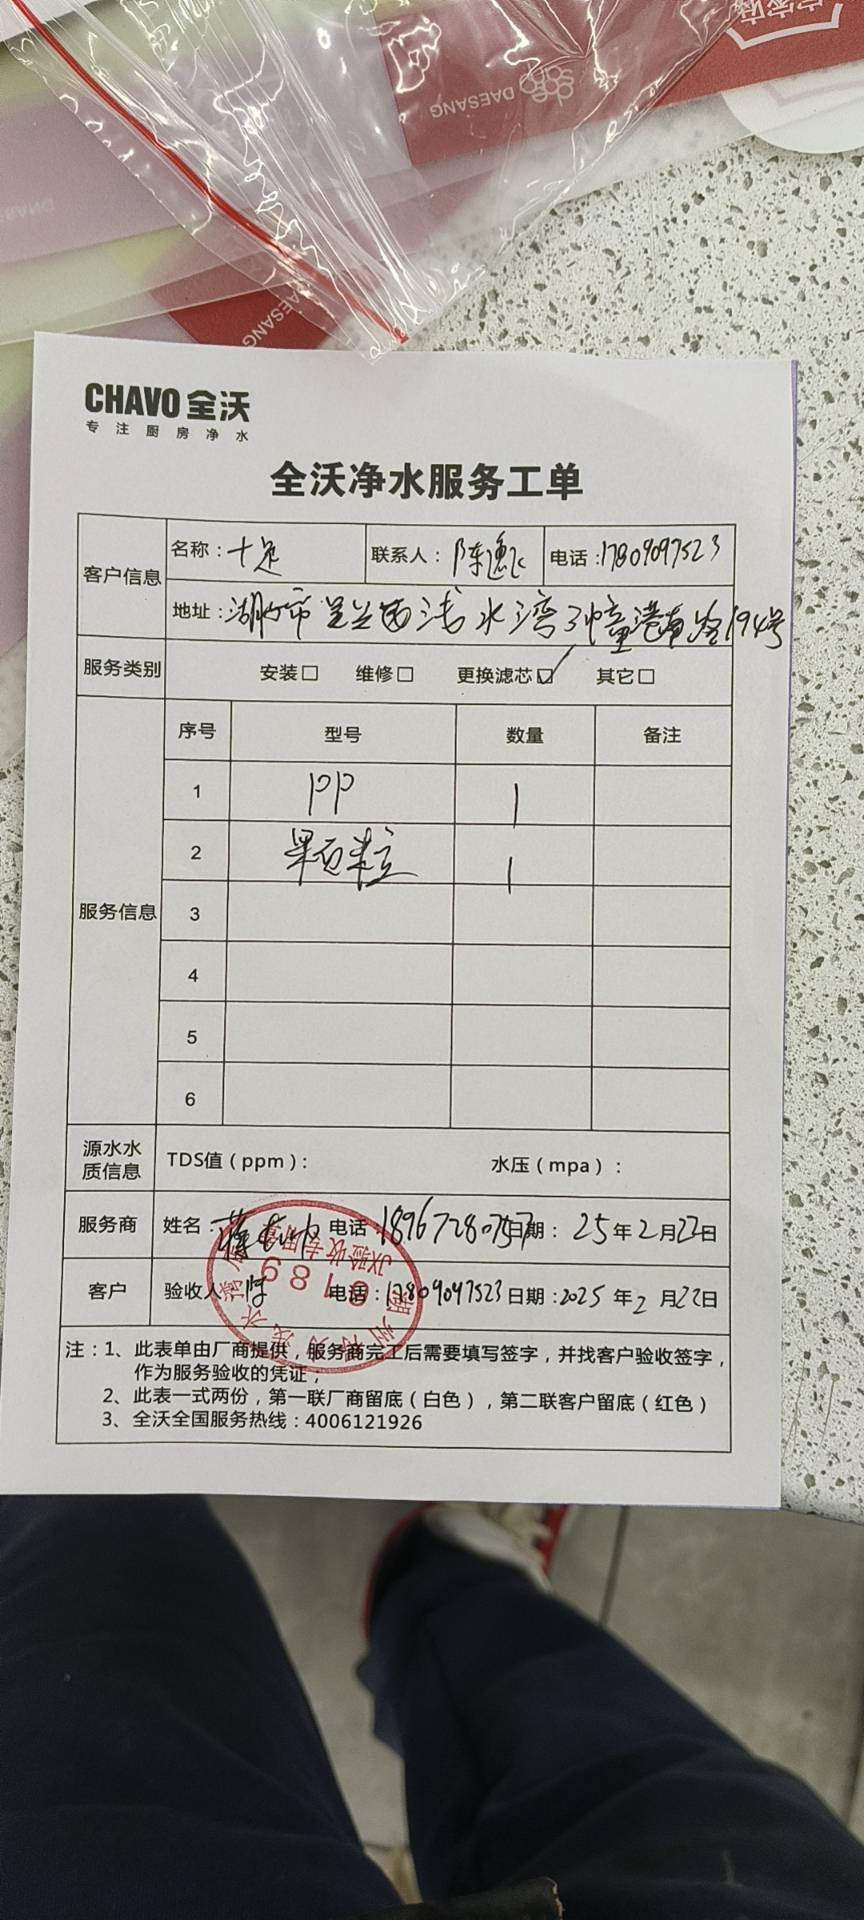 DAESANG
DAESANG
CHAVO 全沃
专注厨房净水
全沃净水服务工单
客户信息 名称：十足 联系人：陈逸飞 电话：17809097523
地址：湖州市吴兴区浅水湾3幢港南路194号
服务类别 安装□ 维修□ 更换滤芯☑ 其它□
服务信息 序号 型号 数量 备注
1 PP 1
2 果颗粒 1
3
4
5
6
源水水质信息 TDS值（ppm）： 水压（mpa）：
服务商 姓名： 电话：18967280757 日期：25年2月22日
客户 验收人：陈 电话：17809097523 日期：2025年2月22日
JX验收专用章
0189
注：1、此表单由厂商提供，服务商完工后需要填写签字，并找客户验收签字，
作为服务验收的凭证；
2、此表一式两份，第一联厂商留底（白色），第二联客户留底（红色）
3、全沃全国服务热线：4006121926